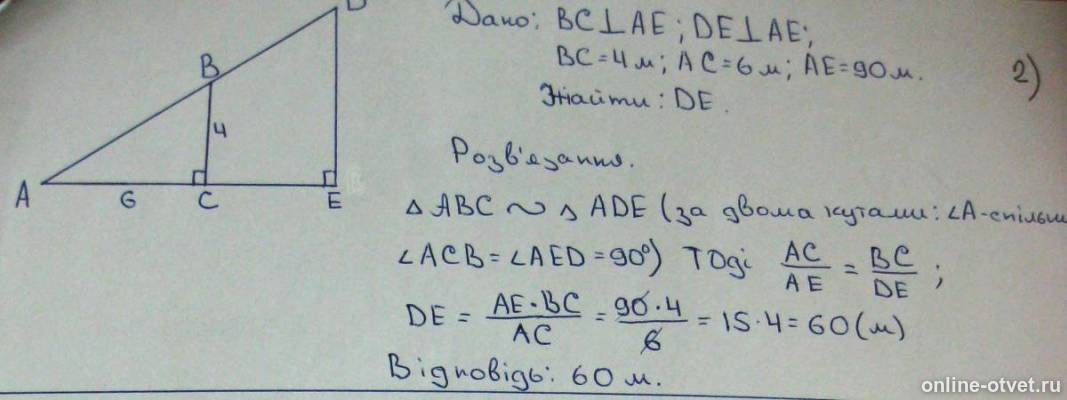 D
B
4
A
6
C
E
Дано: BC⊥AE; DE⊥AE;
BC=4м; AC=6м; AE=90м.
Знайти: DE.
2)
Розв'язання.
△ABC ∾ △ADE (за двома кутами: ∠A-спільн
∠ACB=∠AED=90°) Тоді AC/AE = BC/DE;
DE = AE·BC/AC = 90·4/6 = 15·4=60(м)
Відповідь: 60 м.
online-otvet.ru